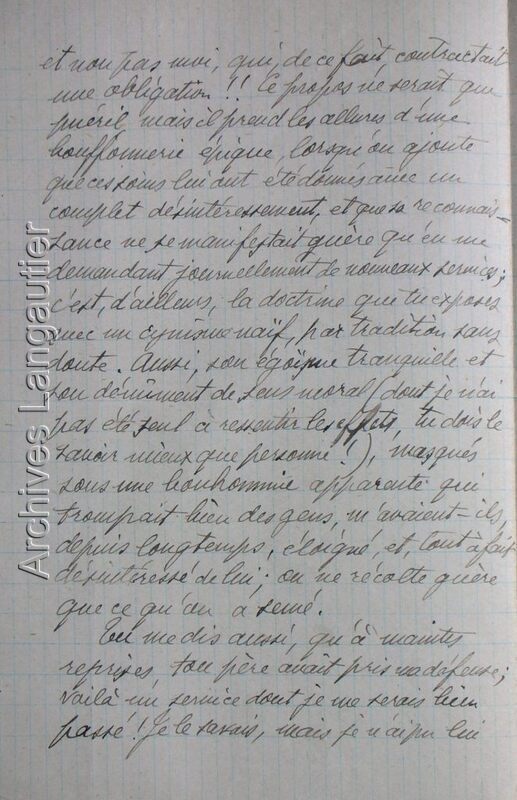 et non pas moi, qui, de ce fait, contractait
une obligation !! Ce propos ne serait que
puéril, mais il prend les allures d'une
bouffonnerie épique, lorsqu'on ajoute
que ces soins lui ont été donnés avec un
complet désintéressement, et que sa reconnais-
sance ne se manifestait guère qu'en me
demandant journellement de nouveaux services;
c'est, d'ailleurs, la doctrine que tu exposes
avec un cynisme naïf, par tradition sans
doute. Aussi, son égoïsme tranquille et
son dénûment de sens moral (dont je n'ai
pas été seul à ressentir les effets, tu dois le
savoir mieux que personne !), masqués
sous une bonhommie apparente qui
trompait bien des gens, m'avaient-ils,
depuis longtemps, éloigné, et, tout à fait
désintéressé de lui; on ne récolte guère
que ce qu'on a semé.
Tu me dis aussi, qu'à maintes
reprises, ton père avait pris ma défense;
voilà un service dont je me serais bien
passé ! Je le savais, mais je n'ai pu lui
Archives Langautier